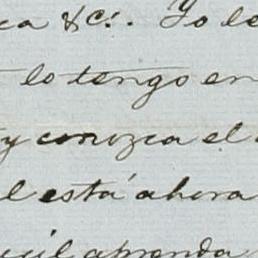 &c. Yo le
lo tengo en
y conozca el
está ahora
aprenda